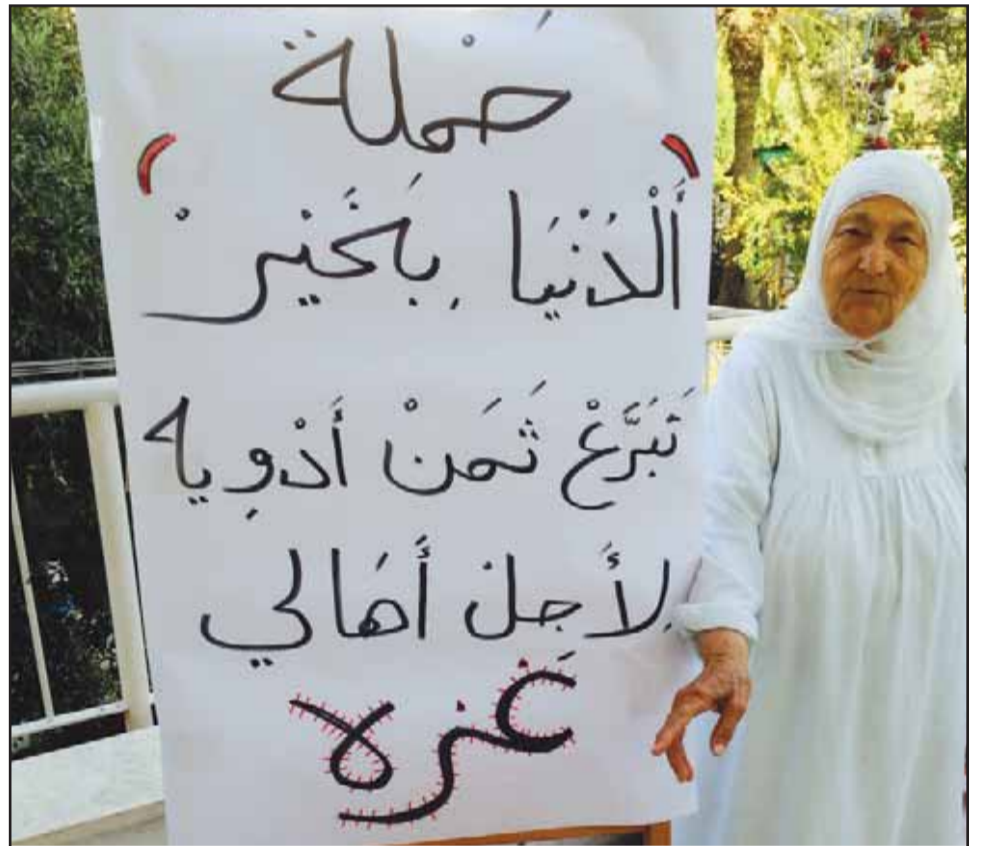 حَملة
( أَلْدُنْيَا بِخَيرْ )
تَبَرَّعْ ثَمَنْ أَدْوِيه
لأَجِلْ أَهَالي
غَزلا